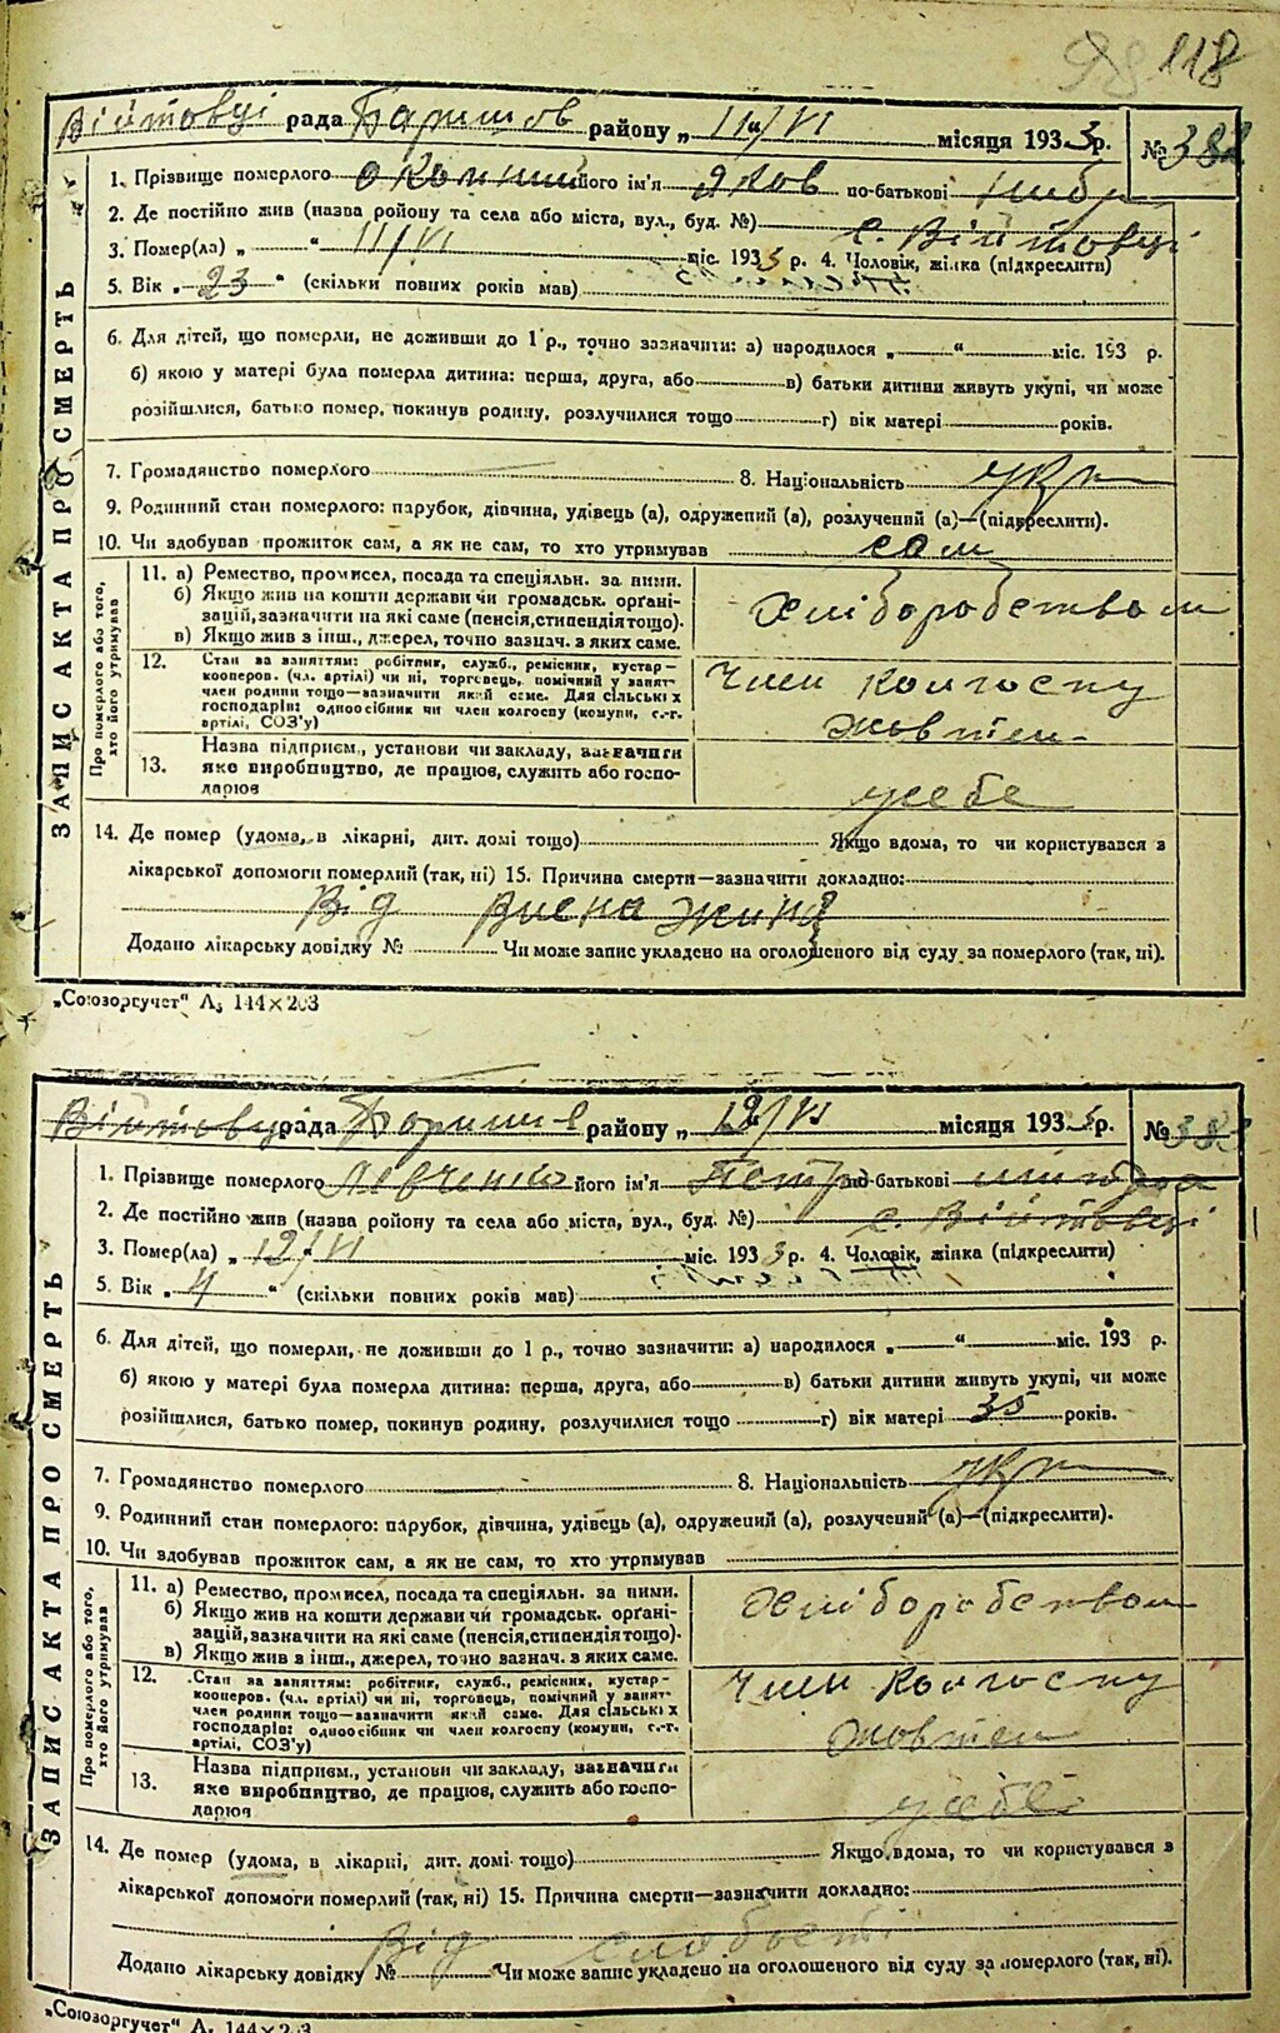 118
Війтовці рада Баришов району „ 11/VI місяця 1933 р. № 382
1. Прізвище померлого його ім'я Яков по-батькові
2. Де постійно жив (назва ройону та села або міста, вул., буд. №) с. Війтовці
3. Помер(ла) „ “ 11/VI міс. 1933 р. 4. Чоловік, жінка (підкреслити)
5. Вік „ 23 “ (скільки повних років мав)
6. Для дітей, що померли, не доживши до 1 р., точно зазначити: а) народилося „ “ міс. 193 р.
б) якою у матері була померла дитина: перша, друга, або в) батьки дитини живуть укупі, чи може
розійшлися, батько помер, покинув родину, розлучилися тощо г) вік матері років.
7. Громадянство померлого 8. Національність укр
9. Родинний стан померлого: парубок, дівчина, удівець (а), одружений (а), розлучений (а)—(підкреслити).
10. Чи здобував прожиток сам, а як не сам, то хто утримував сам
ЗАПИС АКТА ПРО СМЕРТЬ
Про померлого або того, хто його утримував
11. а) Ремество, промисел, посада та спеціяльн. за ними.
б) Якщо жив на кошти держави чи громадськ. орґані-
зацій, зазначити на які саме (пенсія, стипендія тощо).
в) Якщо жив з інш., джерел, точно зазнач. з яких саме.
Хліборобством
12. Стан за заняттям: робітник, служб., ремісник, кустар—
кооперов. (чл. артілі) чи ні, торговець, помічний у занят-
член родини тощо—зазначити який саме. Для сільських
господарів: одноосібник чи член колгоспу (комуни, с.-г.
артілі, СОЗ'у)
Член колгоспу
Жовтен
13. Назва підприєм., установи чи закладу, зазначити
яке виробництво, де працює, служить або госпо-
дарює
усебе
14. Де помер (удома, в лікарні, дит. домі тощо) Якщо вдома, то чи користувався з
лікарської допомоги померлий (так, ні) 15. Причина смерти—зазначити докладно:
Від
Додано лікарську довідку № Чи може запис укладено на оголошеного від суду за померлого (так, ні).
„Союзоргучет“ А₅ 144×203
Війтовці рада району „ 12/VI місяця 1933 р. №
1. Прізвище померлого Левченко його ім'я Петро по-батькові
2. Де постійно жив (назва ройону та села або міста, вул., буд. №) с. Війтовці
3. Помер(ла) „ 12/VI міс. 1933 р. 4. Чоловік, жінка (підкреслити)
5. Вік „ 4 “ (скільки повних років мав)
6. Для дітей, що померли, не доживши до 1 р., точно зазначити: а) народилося „ “ міс. 193 р.
б) якою у матері була померла дитина: перша, друга, або в) батьки дитини живуть укупі, чи може
розійшлися, батько помер, покинув родину, розлучилися тощо г) вік матері 35 років.
7. Громадянство померлого 8. Національність укр
9. Родинний стан померлого: парубок, дівчина, удівець (а), одружений (а), розлучений (а)—(підкреслити).
10. Чи здобував прожиток сам, а як не сам, то хто утримував
ЗАПИС АКТА ПРО СМЕРТЬ
Про померлого або того, хто його утримував
11. а) Ремество, промисел, посада та спеціяльн. за ними.
б) Якщо жив на кошти держави чи громадськ. орґані-
зацій, зазначити на які саме (пенсія, стипендія тощо).
в) Якщо жив з інш., джерел, точно зазнач. з яких саме.
Хліборобством
12. Стан за заняттям: робітник, служб., ремісник, кустар-
кооперов. (чл. артілі) чи ні, торговець, помічний у занят-
член родини тощо—зазначити який саме. Для сільських
господарів: одноосібник чи член колгоспу (комуни, с.-г.
артілі, СОЗ'у)
Член колгоспу
Жовтен
13. Назва підприєм., установи чи закладу, зазначити
яке виробництво, де працює, служить або госпо-
дарює
усебе
14. Де помер (удома, в лікарні, дит. домі тощо) Якщо вдома, то чи користувався з
лікарської допомоги померлий (так, ні) 15. Причина смерти—зазначити докладно:
Від слабості
Додано лікарську довідку № Чи може запис укладено на оголошеного від суду за померлого (так, ні).
„Союзоргучет“ А₅ 144×203